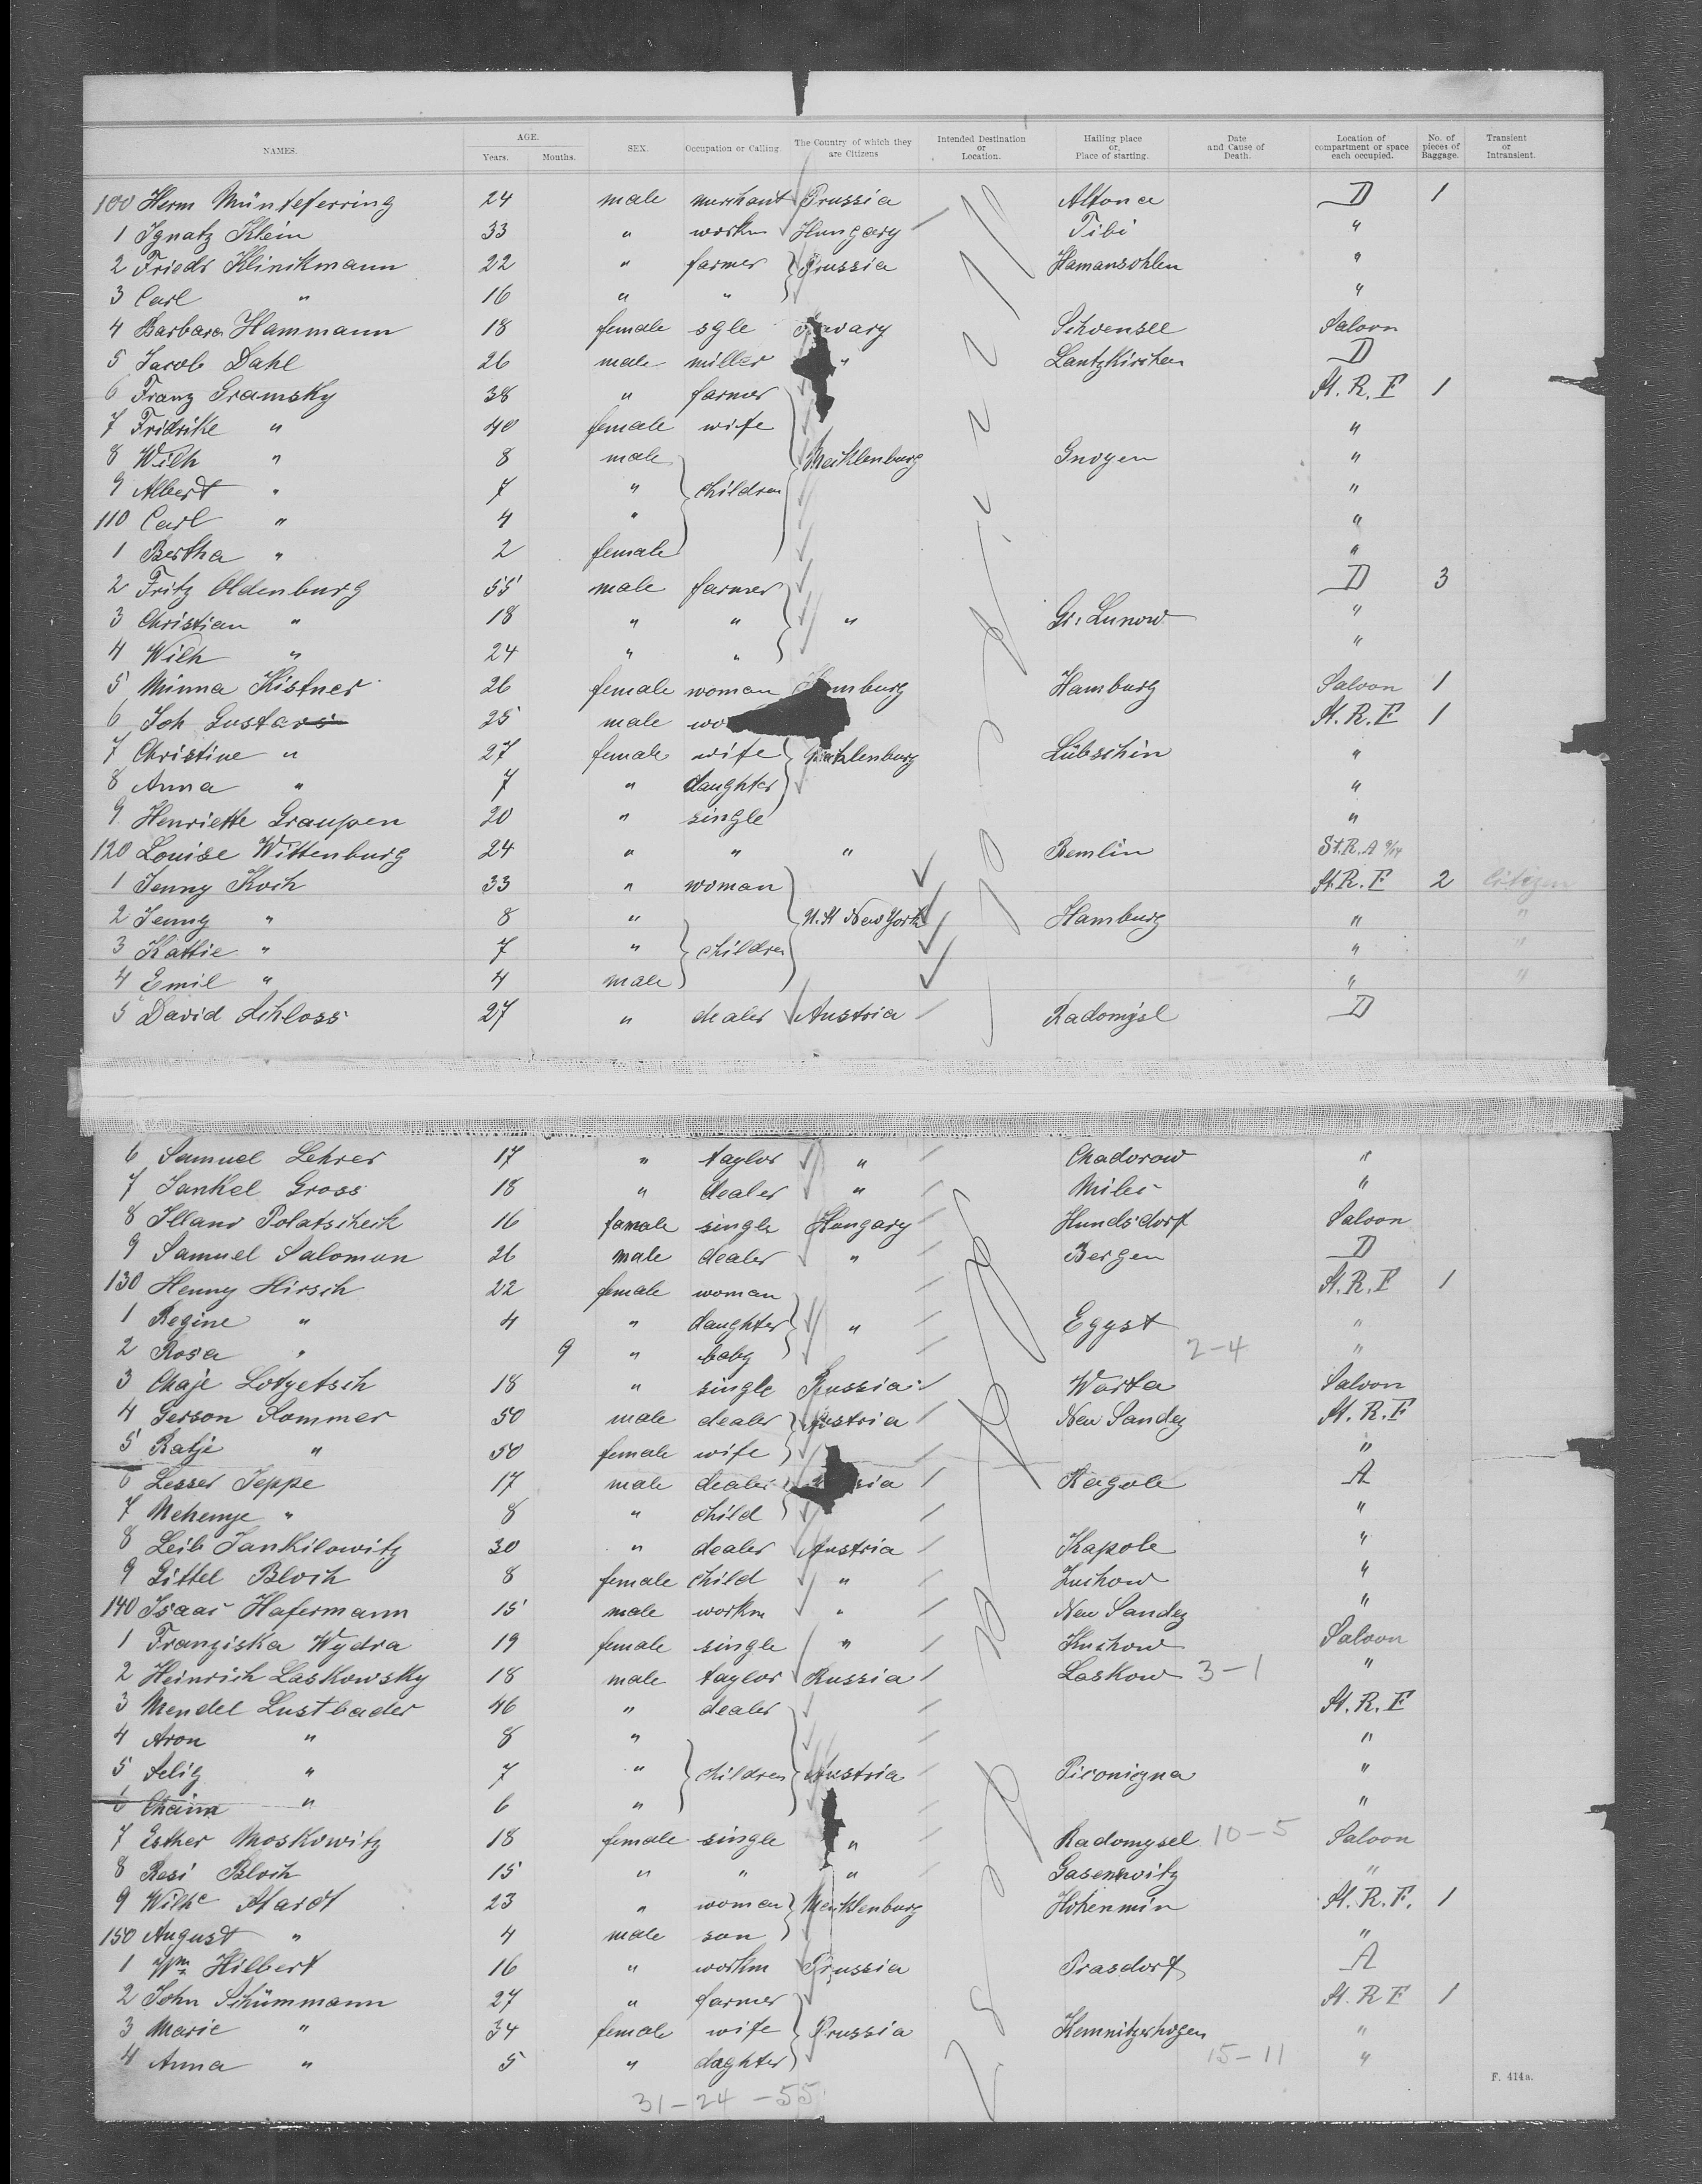 NAMES. AGE. Years. Months. SEX. Occupation or Calling. The Country of which they are Citizens Intended Destination or Location. Hailing place or, Place of starting. Date and Cause of Death. Location of compartment or space each occupied. No. of pieces of Baggage. Transient or Intransient.
100 Herm Münteferring 24 male merchant Prussia Altona D 1
1 Ignatz Klein 33 " workm Hungary Tibi "
2 Friedr Klinikmann 22 " farmer Prussia Hamansohlen "
3 Carl " 16 " " "
4 Barbara Hammann 18 female sgle Schoensee Saloon
5 Jacob Dahl 26 male miller " Lantzkirchen D
6 Franz Gramsky 38 " farmer St. R. F 1
7 Fridrike " 40 female wife "
8 Wilh " 8 male Mecklenburg Gnoyen "
9 Albert " 7 " children "
110 Carl " 4 " "
1 Bertha " 2 female "
2 Fritz Oldenburg 55 male farmer D 3
3 Christian " 18 " " " Gr. Lunow "
4 Wilh " 24 " " "
5 Minna Kistner 26 female woman Hamburg Hamburg Saloon 1
6 Joh 25 male St. R. F 1
7 Christine " 27 female wife Mecklenburg Lübschin "
8 Anna " 7 " daughter "
9 Henriette Graupen 20 " single "
120 Louise Wittenburg 24 " " " Remlin St. R. A
1 Jenny Koch 33 " woman St. R. F 2 Citizen
2 Jenny " 8 " New York Hamburg " "
3 Kattie " 7 " children " "
4 Emil " 4 male " "
5 David Schloss 27 " dealer Austria Radomysl D
6 Samuel Lehrer 17 " taylor " Chadorow "
7 Jankel Gross 18 " dealer " Milec "
8 Polatscheck 16 female single Hungary Hundsdorf Saloon
9 Samuel Salomon 26 male dealer " Bergen D
130 Henny Hirsch 22 female woman St. R. F 1
1 Regine " 4 " daughter " Egyst "
2 Rosa " 9 " baby 2-4 "
3 Chaje Lotzetsch 18 " single Russia Warta Saloon
4 Gerson Sommer 50 male dealer Austria New Sandez St. R. F
5 Ratje " 50 female wife "
6 Lesser Jeppe 17 male dealer Ragole A
7 Nehemje " 8 " child "
8 Leib Jankilowitz 30 " dealer Austria Kapole "
9 Gittel Bloch 8 female child " Zuchow "
140 Isaac Hafermann 15 male workm " New Sandez "
1 Franziska Wydra 19 female single " Kuchow Saloon
2 Heinrich Laskowsky 18 male taylor Russia Laskow 3-1 "
3 Mendel Lustbader 46 " dealer St. R. F
4 Aron " 8 " "
5 Selig " 7 " children Austria Piconiczna "
6 Chaim " 6 " "
7 Esther Moskowitz 18 female single " Radomysel 10-5 Saloon
8 Resi Bloch 15 " " " Gasenwitz "
9 Wilhe Stardt 23 " woman Mecklenburg Hohenmin St. R. F. 1
150 August " 4 male son "
1 Wm Hilbert 16 " workm Prussia Prasdorf A
2 John Schümmann 27 " farmer St. R F 1
3 Marie " 34 female wife Prussia Kemnitzerhagen "
4 Anna " 5 " daghter 15-11 "
31-24-55
F. 414a.